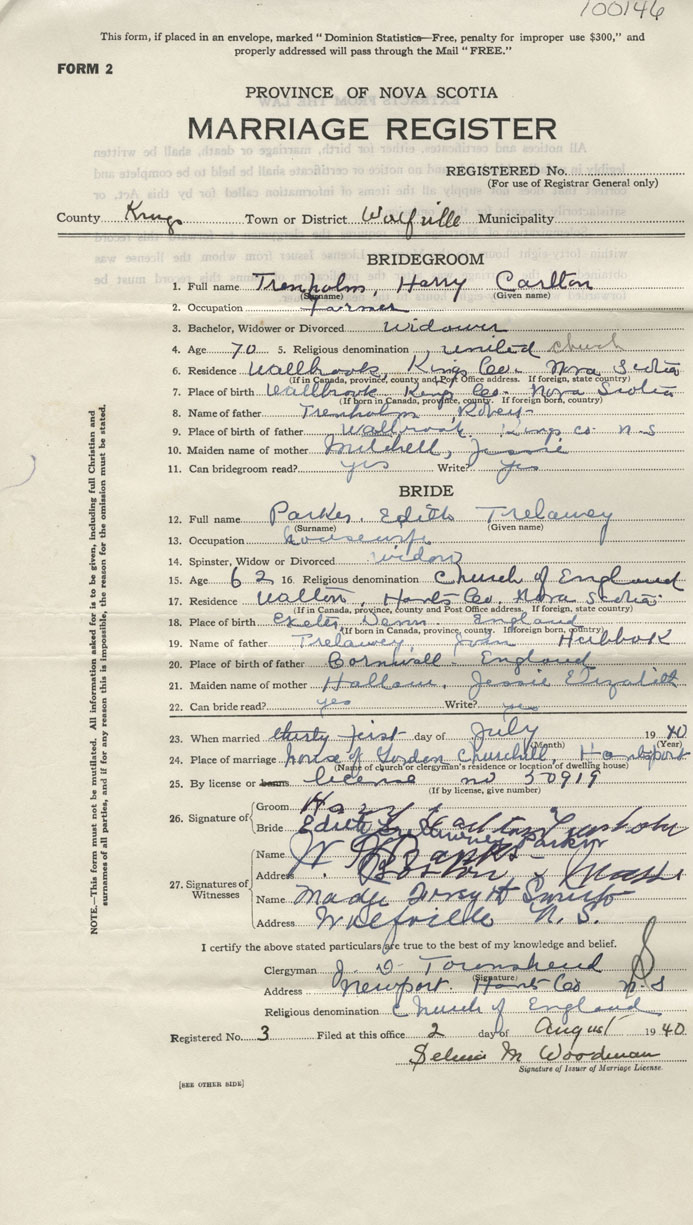 100146
This form, if placed in an envelope, marked "Dominion Statistics—Free, penalty for improper use $300," and
properly addressed will pass through the Mail "FREE."
FORM 2
PROVINCE OF NOVA SCOTIA
MARRIAGE REGISTER
REGISTERED No.
(For use of Registrar General only)
County Kings Town or District Wolfville Municipality
BRIDEGROOM
1. Full name Trenholm, Harry Carlton
(Surname) (Given name)
2. Occupation farmer
3. Bachelor, Widower or Divorced Widower
4. Age 70 5. Religious denomination United church
6. Residence Wallbrook, Kings Co. Nova Scotia
(If in Canada, province, county and Post Office address. If foreign, state country)
7. Place of birth Wallbrook Kings Co. Nova Scotia
(If born in Canada, province, county. If foreign born, country)
8. Name of father Trenholm Robert
9. Place of birth of father Wallbrook Kings co. N.S
10. Maiden name of mother Mitchell, Jessie
11. Can bridegroom read? yes Write? yes
BRIDE
12. Full name Parker, Edith Trelawey
(Surname) (Given name)
13. Occupation housewife
14. Spinster, Widow or Divorced widow
15. Age 62 16. Religious denomination Church of England
17. Residence Walton, Hants Co. Nova Scotia
(If in Canada, province, county and Post Office address. If foreign, state country)
18. Place of birth Exeter, England
(If born in Canada, province, county. If foreign born, country)
19. Name of father Trelawey, John
20. Place of birth of father Cornwall England
21. Maiden name of mother Hallow, Jessie Elizabeth
22. Can bride read? yes Write? yes
23. When married thirty first day of July 1940
(Month) (Year)
24. Place of marriage house of Gordon Churchill, Hantsport
(Name of church or clergyman's residence or location of dwelling house)
25. By license or banns license no 50919
(If by license, give number)
26. Signature of
Groom Harry Carlton Trenholm
Bride Edith Trelawney Parker
27. Signatures of Witnesses
Name W. Banks
Address Boston Mass
Name Madge Forsyth
Address Wolfville N.S.
I certify the above stated particulars are true to the best of my knowledge and belief.
Clergyman J. D. Townshend
(Signature)
Address Newport Hants Co N.S
Religious denomination Church of England
Registered No. 3 Filed at this office 2 day of August 1940.
M Woodman
Signature of Issuer of Marriage License.
[SEE OTHER SIDE]
NOTE.—This form must not be mutilated. All information asked for is to be given, including full Christian and
surnames of all parties, and if for any reason this is impossible, the reason for the omission must be stated.